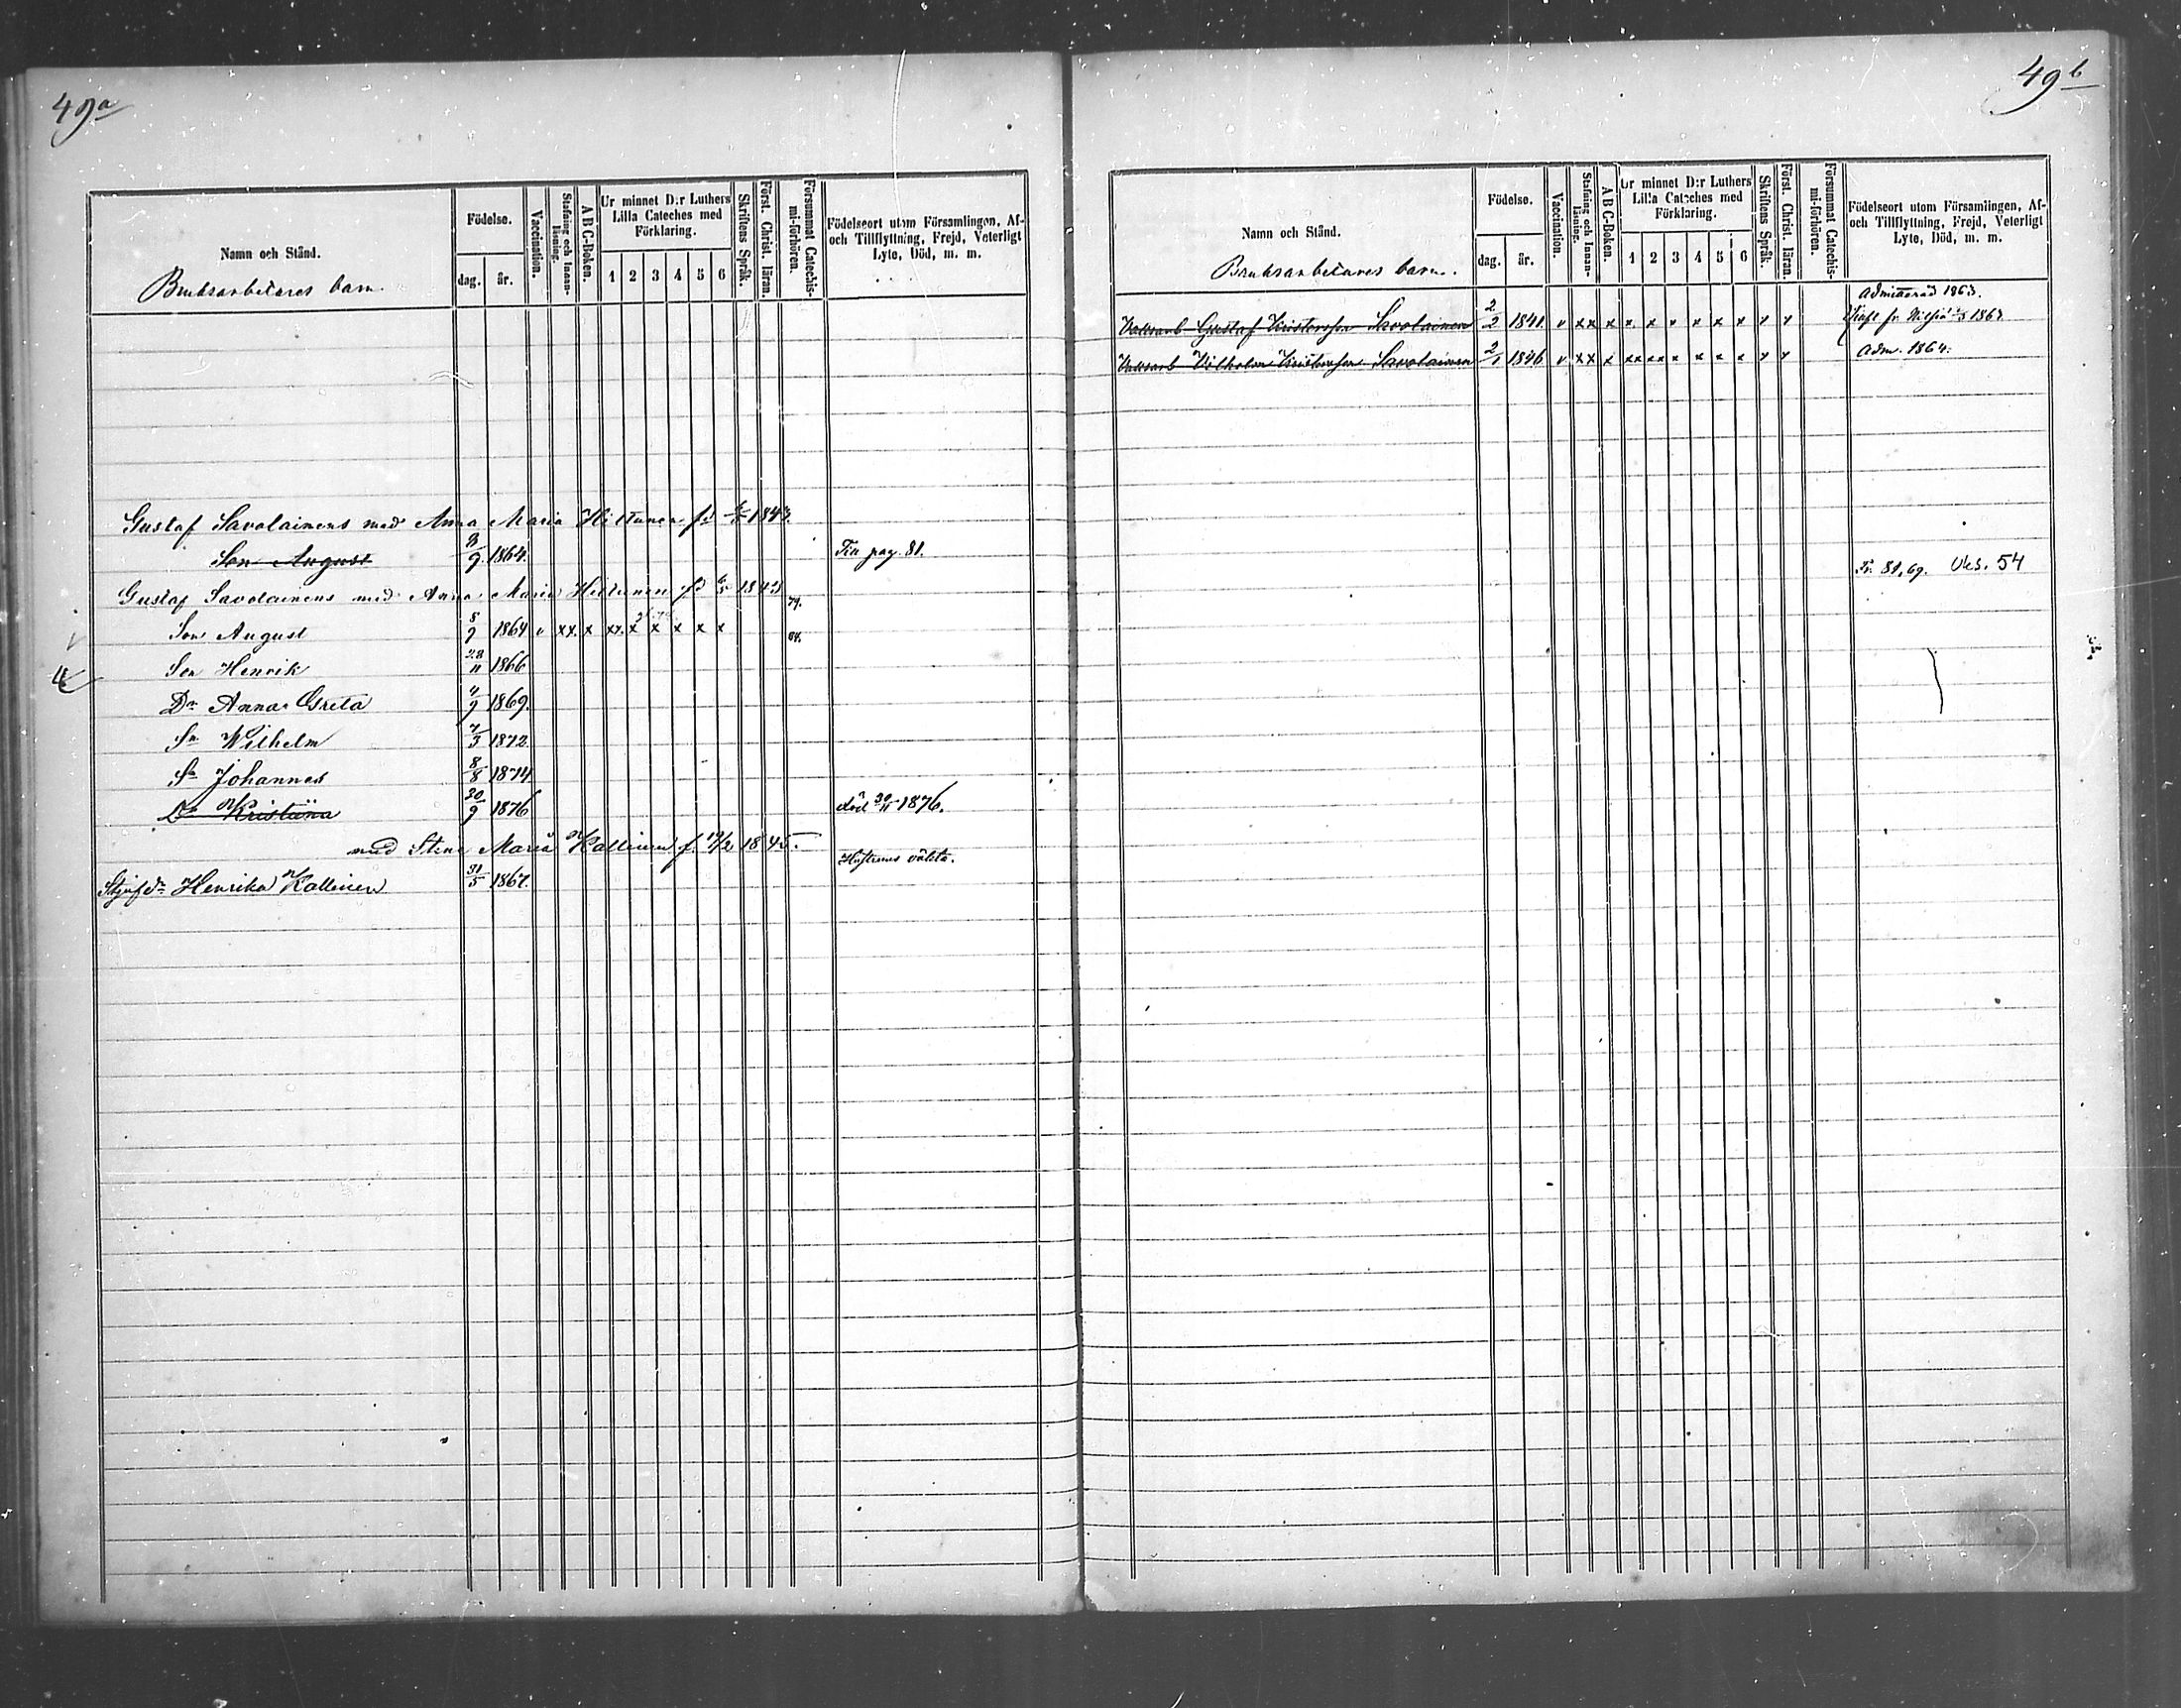 49a
Namn och Stånd.
Bruksarbetares barn.
Födelse.
dag.
år.
Vaccination.
Stafning och Innan-läsning.
A B C-Boken.
Ur minnet D:r Luthers
Lilla Cateches med
Förklaring.
1 2 3 4 5 6
Skriftens Språk.
Först. Christ. läran.
Försummat Catechis-mi-förhören.
Födelseort utom Församlingen, Af-
och Tillflyttning, Frejd, Veterligt
Lyte, Död, m. m.
Gustaf Savolainens med Anna Maria Hiltunen fd 6/5 1843.
Son August 8/9 1864. Fin pag. 81.
Gustaf Savolainens med Anna Maria Hiltunen fd 6/5 1843
79.
Son August 8/9 1864 v xx. x xx. x x x x x 84.
Son Henrik 28/11 1866
Dr Anna Greta 4/9 1869.
Sn Wilhelm 7/3 1872
Sn Johannes 8/8 1874
Dr Kristiina 30/9 1876 död 30/11 1876.
med Stina Maria Kallinen f. 19/2 1845.
Hustruns oäkta.
Styfdr Henrika Kallinen 31/5 1867.
49b
Namn och Stånd.
Bruksarbetares barn.
Födelse.
dag.
år.
Vaccination.
Stafning och Innan-läsning.
A B C-Boken.
Ur minnet D:r Luthers
Lilla Cateches med
Förklaring.
1 2 3 4 5 6
Skriftens Språk.
Först. Christ. läran.
Försummat Catechis-mi-förhören.
Födelseort utom Församlingen, Af-
och Tillflyttning, Frejd, Veterligt
Lyte, Död, m. m.
Admitterad 1863.
Gustaf Kristersson Savolainen 2/2 1841. v xx x x. x x x x x x x fr. Nilsiä 1867
Wilhelm Kristersson Savolainen 2/1 1846 v xx x xx xx x x x x x x Adm. 1864.
Fr. 81, 69. Uks. 54